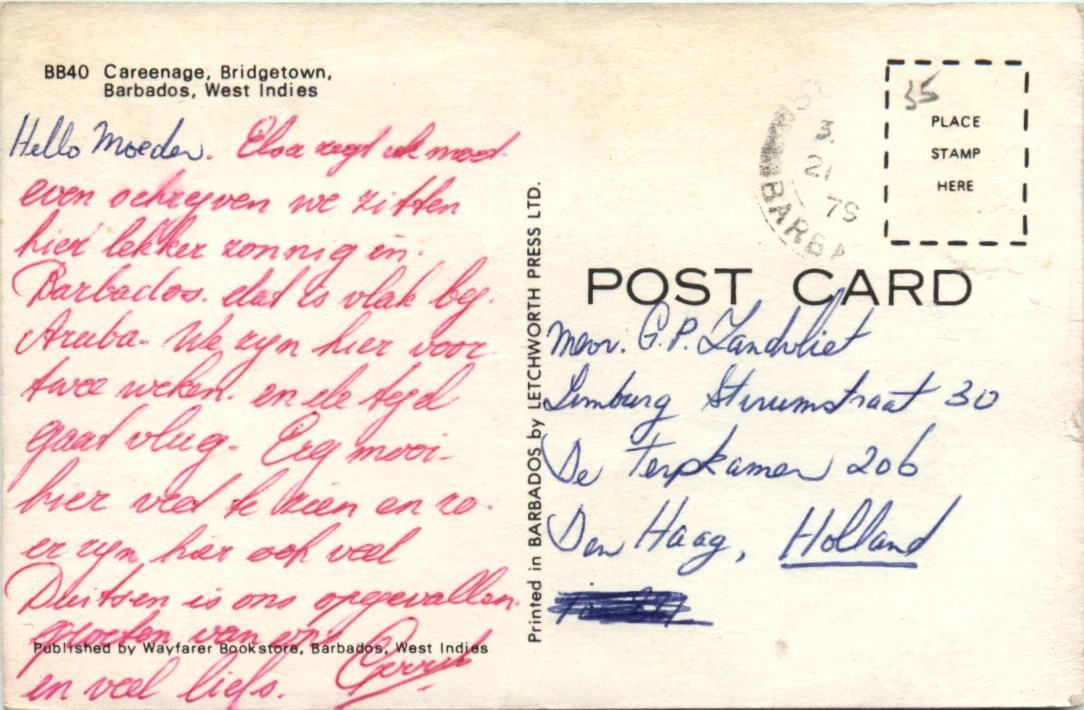 BB40 Careenage, Bridgetown,
Barbados, West Indies
Hello Moeder. Elsa zegt ik moet
even schreyven we zitten
hier lekker zonnig in.
Barbados. dat is vlak bey.
Aruba. We zyn hier voor
twee weken. en de teyd
gaat vlug. Erg mooi.
hier veel te zien en zo.
er zyn hier ook veel
Duitsen is ons opgevallen.
groeten van ons
Published by Wayfarer Bookstore, Barbados, West Indies
en veel liefs. Gerrit
Printed in BARBADOS by LETCHWORTH PRESS LTD.
3.
21
79
BARBA
35
PLACE
STAMP
HERE
POST CARD
mevr. G.P. Zandvliet
Limburg Stirumstraat 30
De Terpkamer 206
Den Haag, Holland